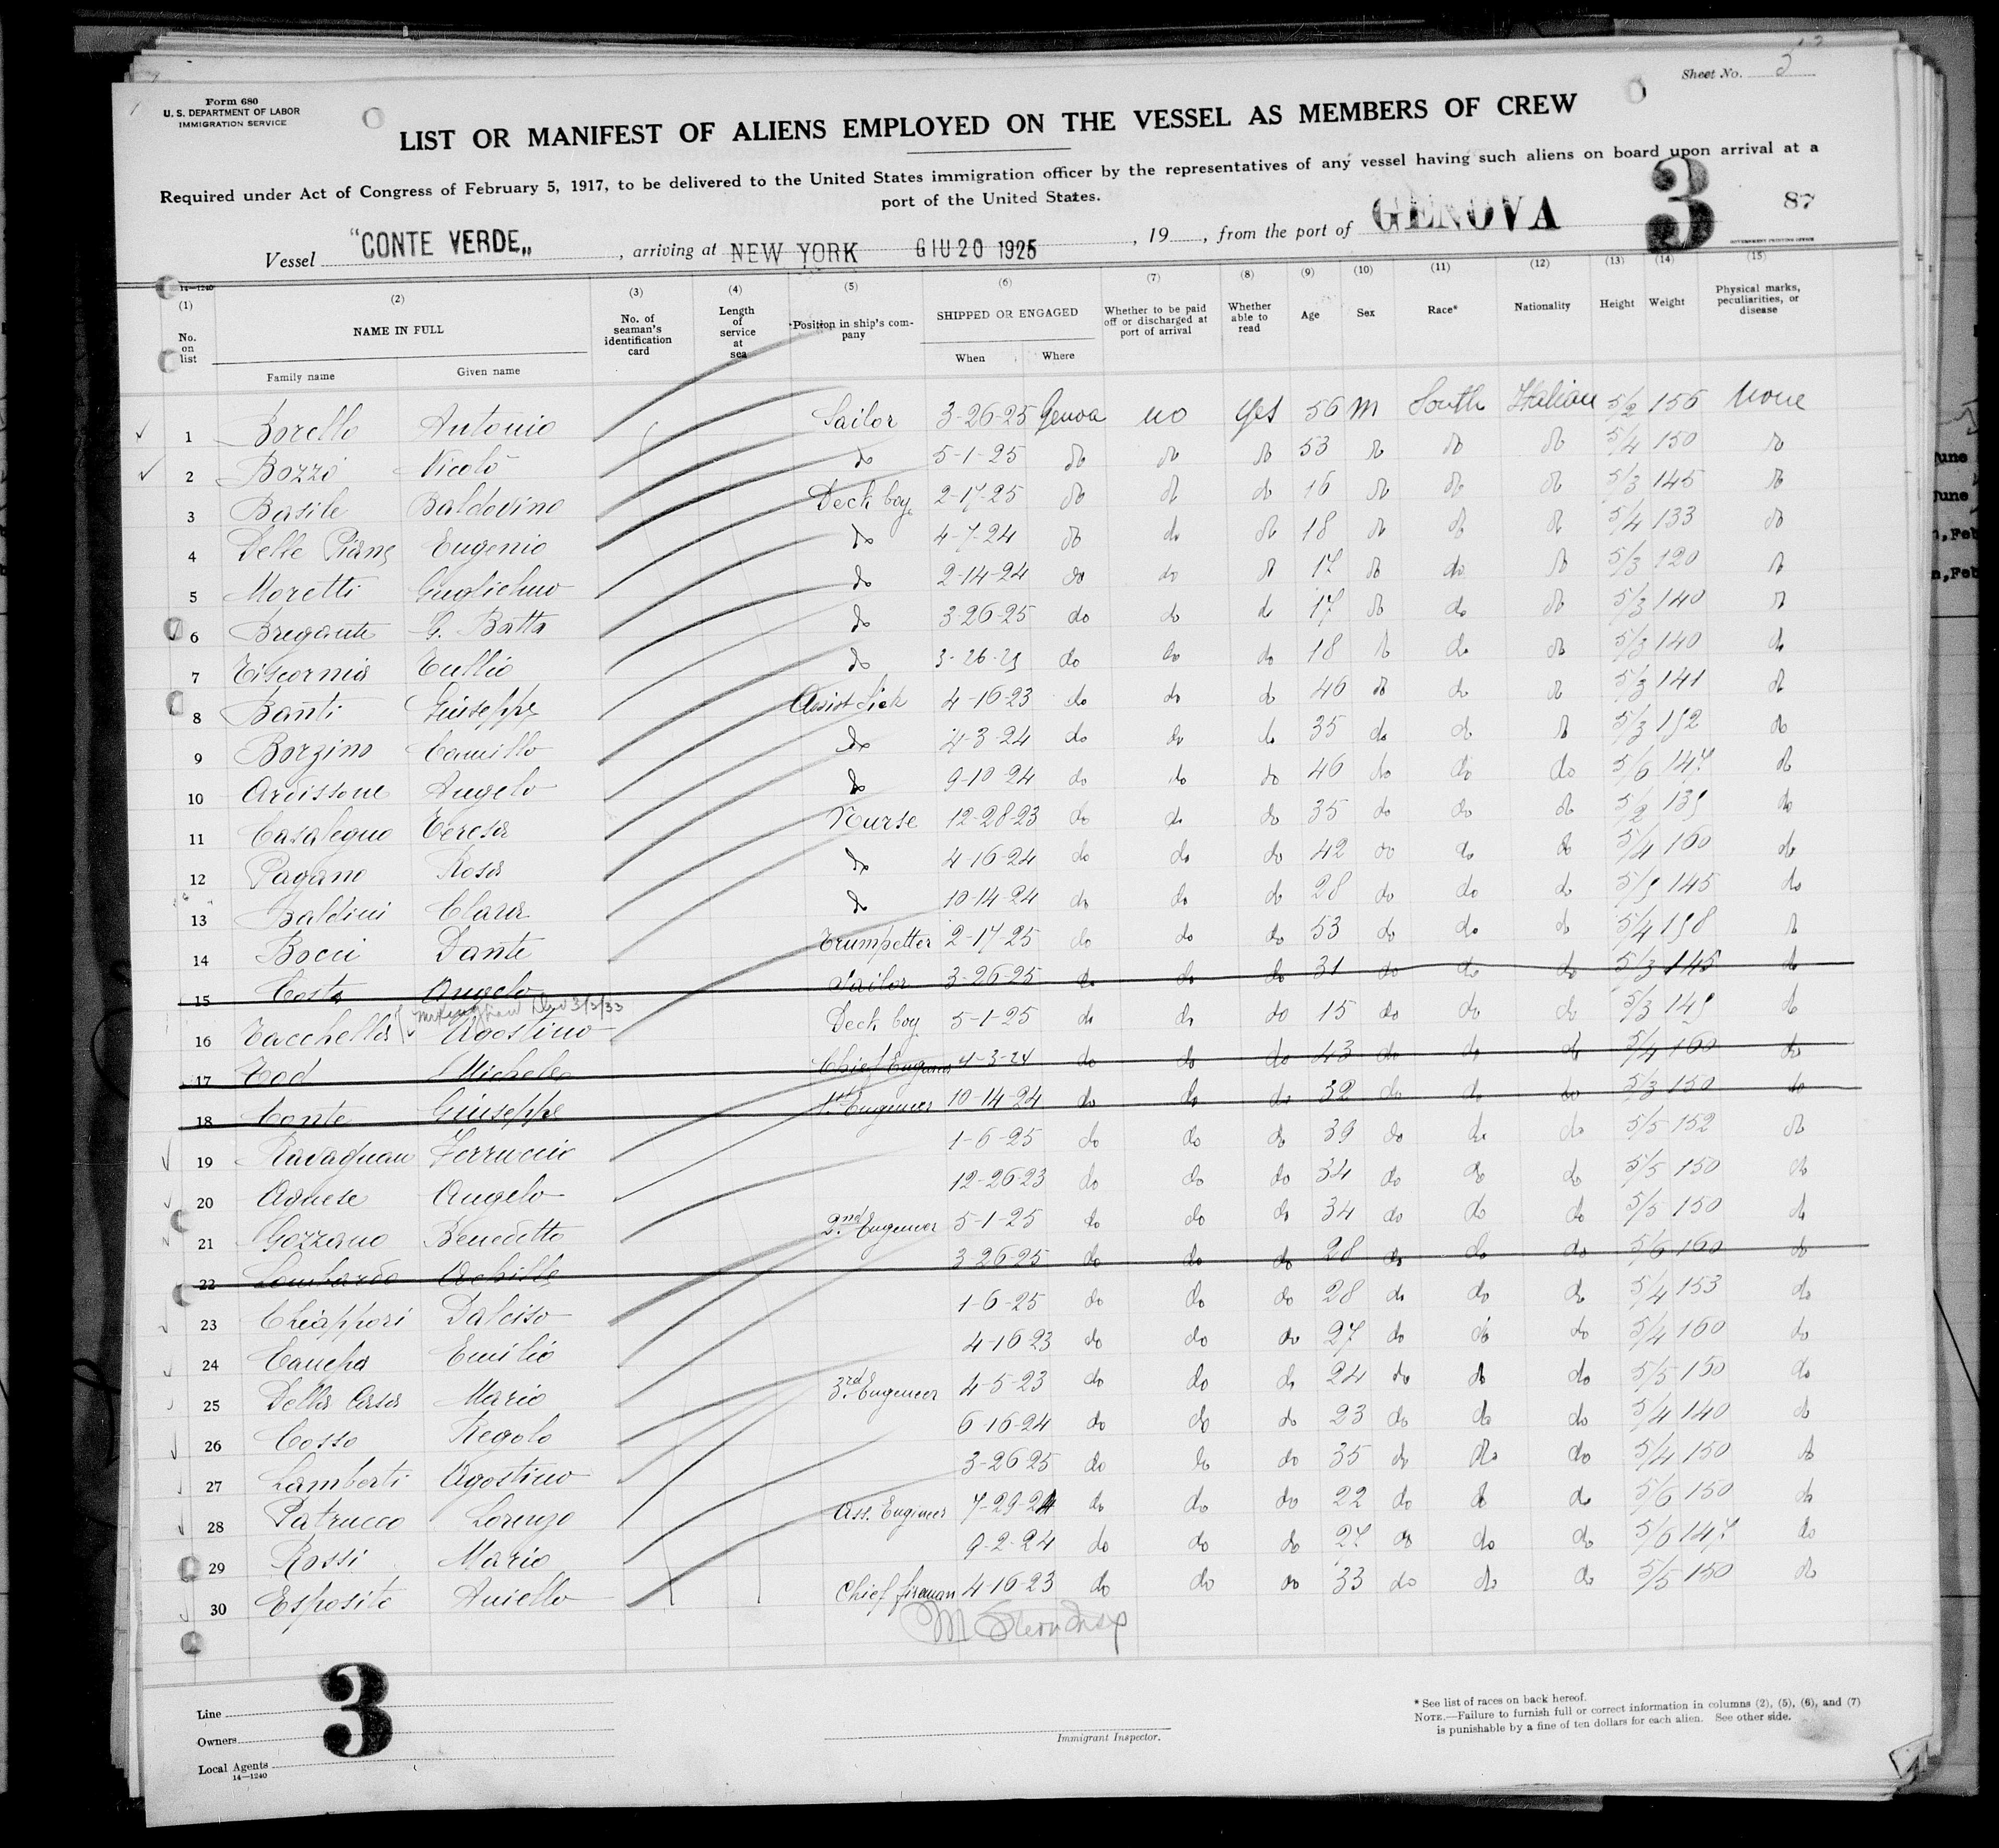 Sheet No. 3
Form 680
U. S. DEPARTMENT OF LABOR
IMMIGRATION SERVICE
LIST OR MANIFEST OF ALIENS EMPLOYED ON THE VESSEL AS MEMBERS OF CREW
Required under Act of Congress of February 5, 1917, to be delivered to the United States immigration officer by the representatives of any vessel having such aliens on board upon arrival at a
port of the United States.
3 87
Vessel "CONTE VERDE„ , arriving at NEW YORK GIU 20 1925 , 19 , from the port of GENOVA
GOVERNMENT PRINTING OFFICE
14—1240
(1) (2) (3) (4) (5) (6) (7) (8) (9) (10) (11) (12) (13) (14) (15)
No. on list NAME IN FULL No. of seaman's identification card Length of service at sea Position in ship's company SHIPPED OR ENGAGED Whether to be paid off or discharged at port of arrival Whether able to read Age Sex Race* Nationality Height Weight Physical marks, peculiarities, or disease
Family name Given name When Where
1 Borello Antonio Sailor 3-26-25 Genoa no yes 56 m South Italian 5/2 156 none
2 Bozzo Nicolò do 5-1-25 do do do 53 do do do 5/4 150 do
3 Basile Baldovino Deck boy 2-17-25 do do do 16 do do do 5/3 145 do
4 Delle Piane Eugenio do 4-7-24 do do do 18 do do do 5/4 133 do
5 Moretti Guglielmo do 2-14-24 do do do 17 do do do 5/3 120 do
6 Bregante G. Batta do 3-26-25 do do do 17 do do do 5/3 140 do
7 Tiscornia Tullio do 3-26-25 do do do 18 do do do 5/3 140 do
8 Banti Giuseppe Assist Sick 4-16-23 do do do 46 do do do 5/3 141 do
9 Borzino Camillo do 4-3-24 do do do 35 do do do 5/3 152 do
10 Ardissone Angelo do 9-10-24 do do do 46 do do do 5/6 147 do
11 Casalegno Teresa Nurse 12-28-23 do do do 35 do do do 5/2 135 do
12 Pagano Rosa do 4-16-24 do do do 42 do do do 5/4 160 do
13 Baldini Clara do 10-14-24 do do do 28 do do do 5/5 145 do
14 Bocci Dante Trumpetter 2-17-25 do do do 53 do do do 5/4 158 do
15 Costa Angelo Sailor 3-26-25 do do do 31 do do do 5/3 145 do
3/3/33
16 Tacchella Agostino Deck boy 5-1-25 do do do 15 do do do 5/3 145 do
17 Tod Michele Chief Engineer 4-3-24 do do do 43 do do do 5/4 160 do
18 Conte Giuseppe 1st Engineer 10-14-24 do do do 32 do do do 5/3 150 do
19 Ravagnan Ferruccio 1-6-25 do do do 39 do do do 5/5 152 do
20 Agnese Angelo 12-26-23 do do do 34 do do do 5/5 150 do
21 Gozzano Benedetto 2nd Engineer 5-1-25 do do do 34 do do do 5/5 150 do
22 Lombardo Achille 3-26-25 do do do 28 do do do 5/6 160 do
23 Chiappori Dalciso 1-6-25 do do do 28 do do do 5/4 153 do
24 Canepa Emilio 4-16-23 do do do 27 do do do 5/4 160 do
25 Della Casa Mario 3rd Engineer 4-5-23 do do do 24 do do do 5/5 150 do
26 Cosso Regolo 6-16-24 do do do 23 do do do 5/4 140 do
27 Lamberti Agostino 3-26-25 do do do 35 do do do 5/4 150 do
28 Patrucco Lorenzo Ass. Engineer 7-29-24 do do do 22 do do do 5/6 150 do
29 Rossi Mario 9-2-24 do do do 27 do do do 5/6 147 do
30 Esposito Aniello Chief fireman 4-16-23 do do do 33 do do do 5/5 150 do
3
Line
Owners
Local Agents
14—1240
Immigrant Inspector.
* See list of races on back hereof.
NOTE.—Failure to furnish full or correct information in columns (2), (5), (6), and (7)
is punishable by a fine of ten dollars for each alien. See other side.
June
June
n, Feb
n, Feb